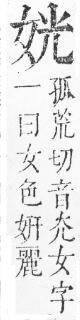 姯
孤荒切音光女字
一曰女色妍麗